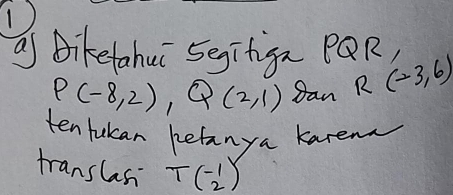 1
a) Diketahui segitiga PQR,
P (-8,2), Q (2,1) dan R (-3,6)
tentukan petanya karena
translasi T(-1 2)